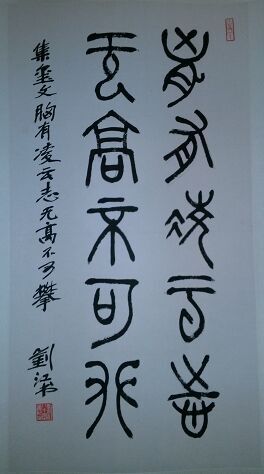 胸有凌云志
无高不可攀
集玺文胸有凌云志无高不可攀 劉江书